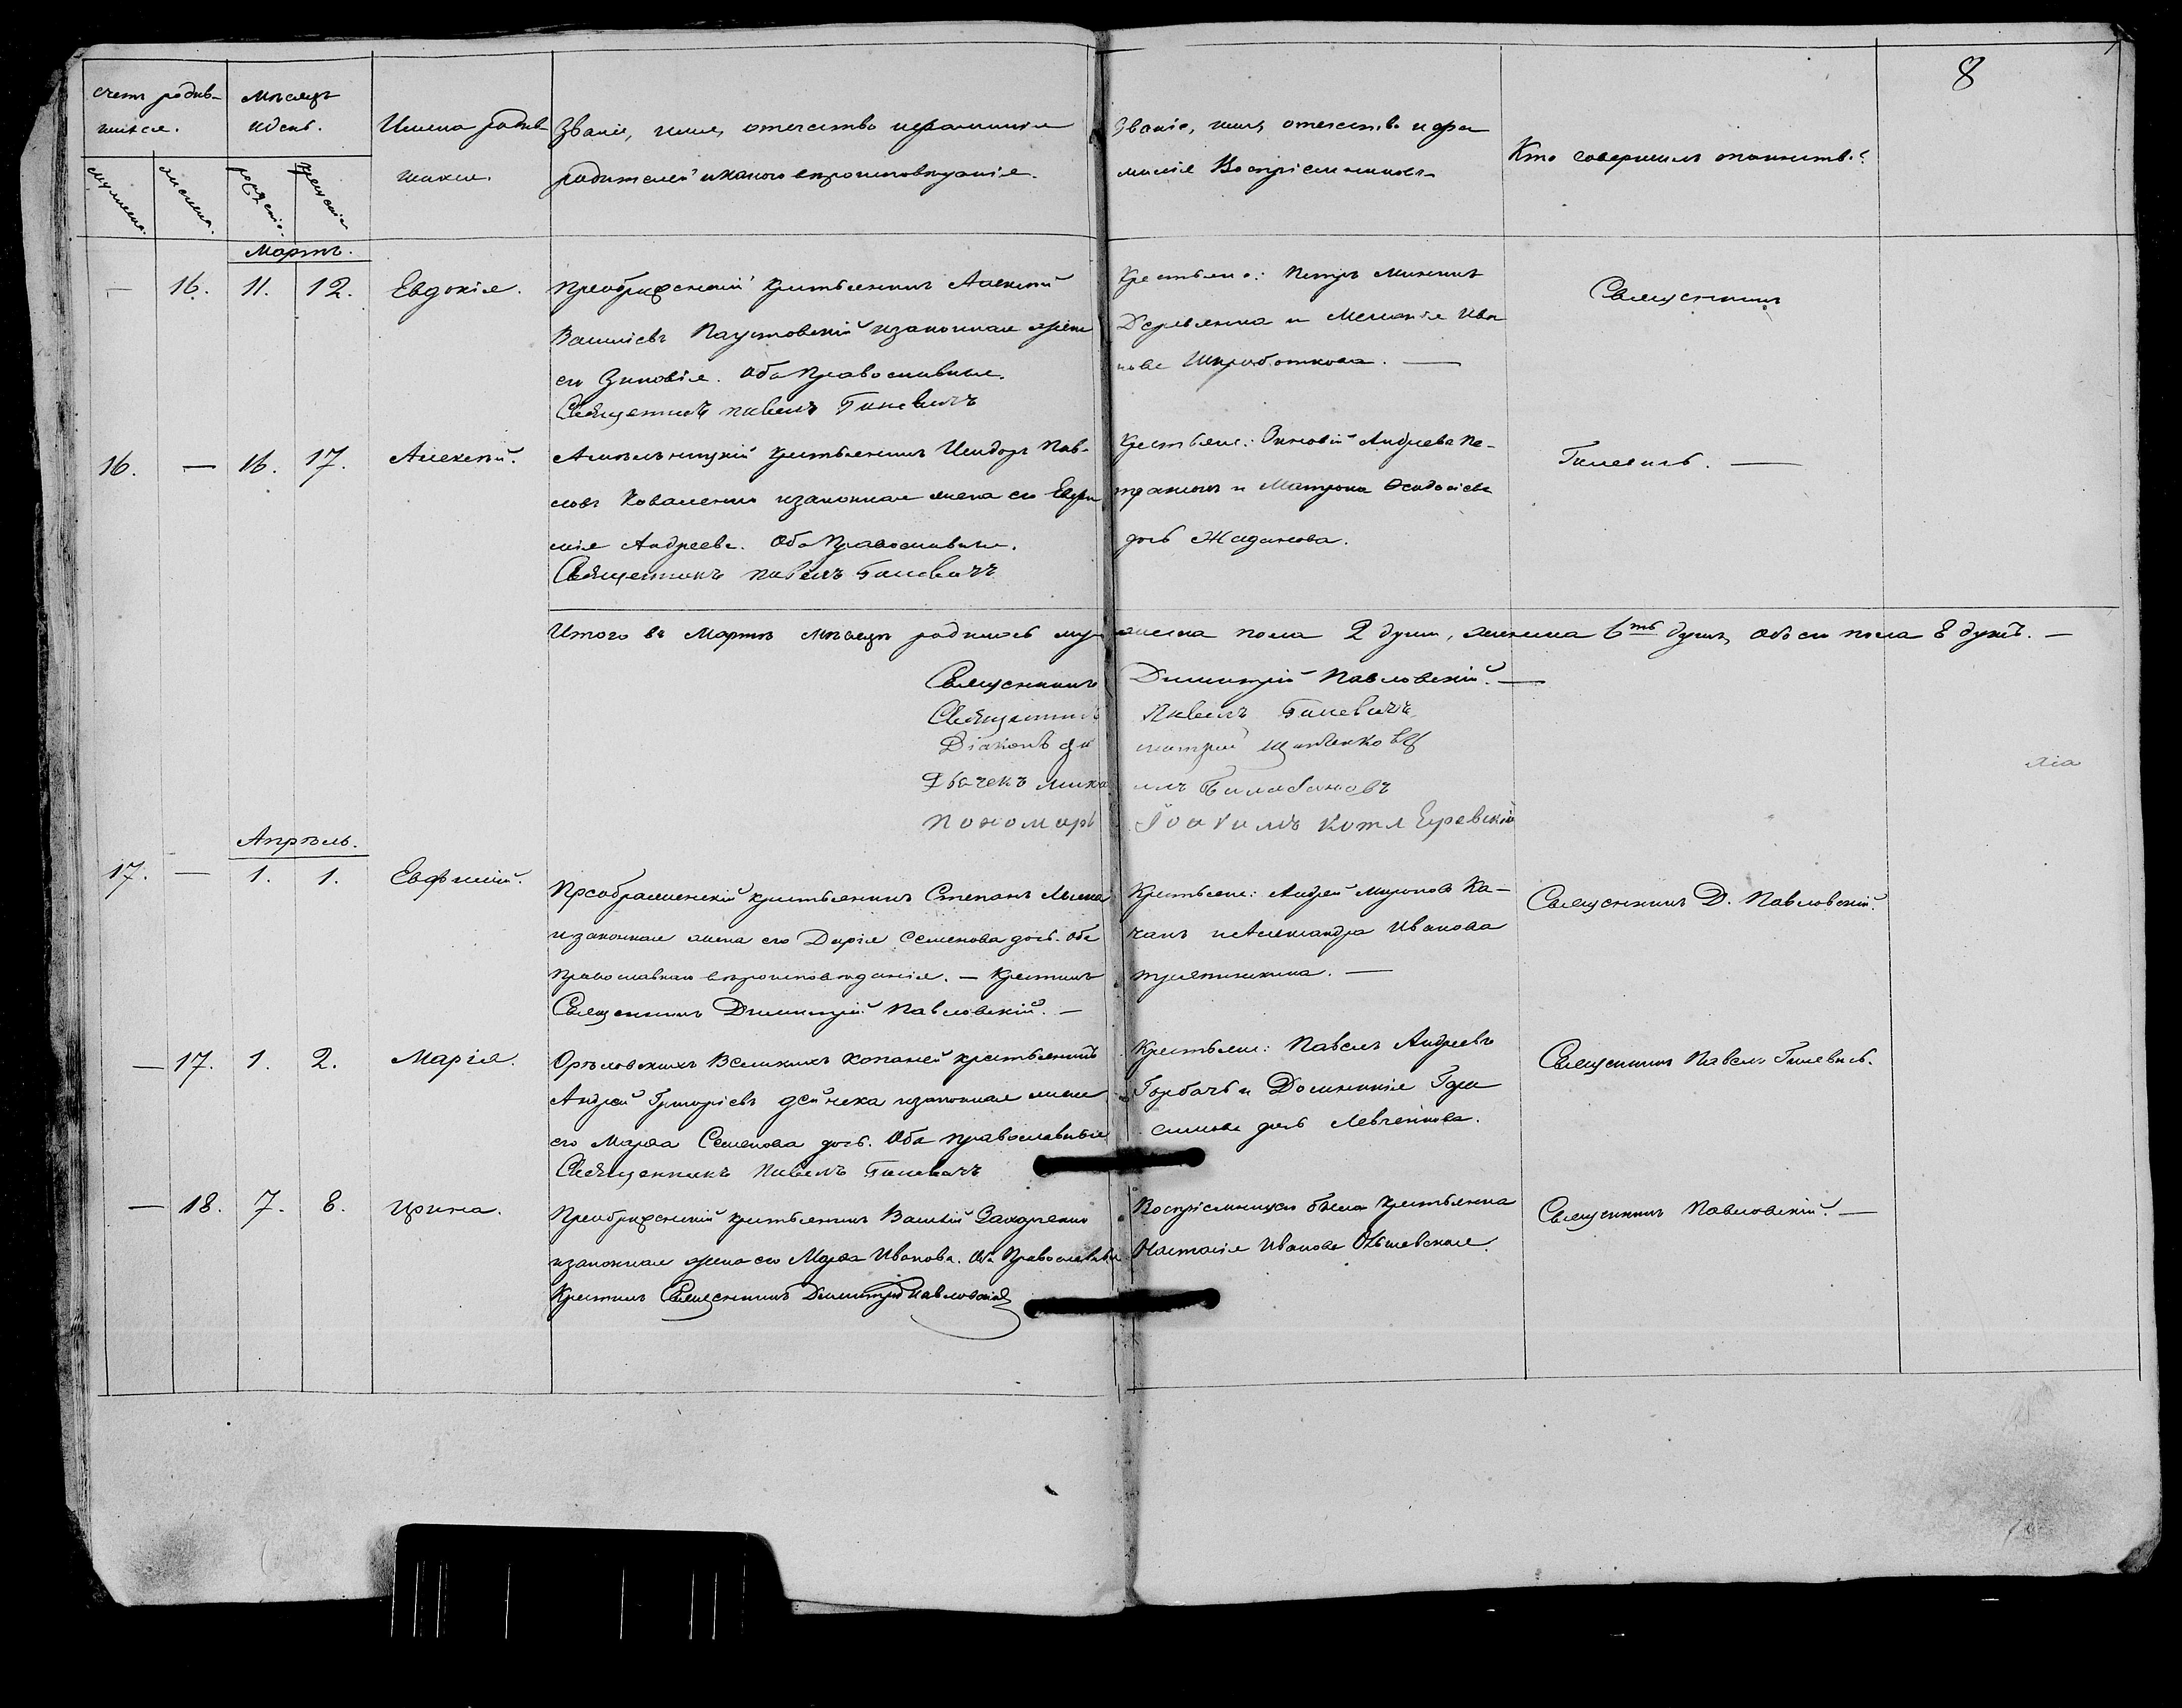 8
Счетъ родив-
шихся.
Мѣсяцъ
и день.
Имена родив-
шихся.
Званіе, имя, отечество и фамилія
родителей и какого вѣроисповѣданія.
Званіе, имя, отечество и фа
милія Воспріемниковъ.
Кто совершилъ таинство?
мужеска.
женска.
рожденія.
крещенія
Мартъ.
— 16. 11. 12. Евдокія.
Преображенскій крестьянинъ Алексѣй
Василіевъ Паустовскій и законная жена
его Зиновія. Оба Православные.
Священникъ Павелъ Гилевичъ
Крестьяне: Петръ
и Меланія Ива
нова
Священникъ
16. — 16. 17. Алексѣй.
крестьянинъ Исидоръ Пав-
ловъ Коваленко и законная жена его Евфи
мія Андреева. Оба Православные.
Священникъ Павелъ Гилевичъ
Крестьяне: Зиновій Андреевъ Пе-
и Матрона Феодосіева
дочь Жаданова.
Гилевичъ. —
Итого въ Мартѣ мѣсяцѣ родилось муж
жеска пола 2 души, женска 6ть душъ, обоего пола 8 душъ. —
Священникъ Димитрій Павловскій. —
Священникъ Павелъ Гилевичъ
Діаконъ Ди митрій
Дьячекъ Миха илъ Билобановъ
Пономарь Іоакимъ
Апрѣль.
17. — 1. 1. Евфимій.
Преображенскій крестьянинъ Степанъ
и законная жена его Дарія Семенова дочь. Оба
православнаго вѣроисповѣданія. — Крестилъ
Священникъ Димитрій Павловскій. —
Крестьяне: Андрей Мироновъ Ка-
чанъ и Александра Иванова
Священникъ Д. Павловскій.
— 17. 1. 2. Марія.
Орѣловскихъ Великихъ Копаней крестьянинъ
Андрей Григоріевъ Дейнека и законная жена
его Марѳа Семенова дочь. Оба православные
Священникъ Павелъ Гилевичъ
Крестьяне: Павелъ Андреевъ
Горбачь и Домникія Гера
симова дочь Левченкова.
Священникъ Павелъ Гилевичъ.
— 18. 7. 8. Ирина.
Преображенскій крестьянинъ Василій Захарченко
и законная жена его Марѳа Иванова. Оба Православные
Крестилъ Священникъ Димитрій Павловскій
Воспріемницею была крестьянка
Настасія Иванова
Священникъ Павловскій. —